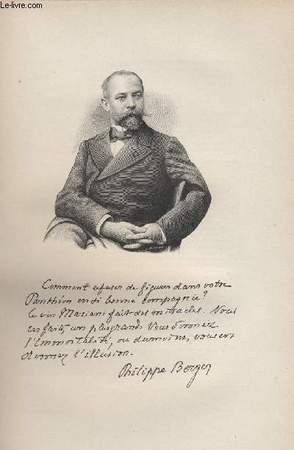 Le-livre.com
Comment refuser de figurer dans votre
Panthéon en si bonne compagnie?
Le vin Mariani fait des miracles. Vous
en faites un plus grand: Vous donnez
l'Immortalité, ou du moins, vous en
donnez l'illusion.
Philippe Berger